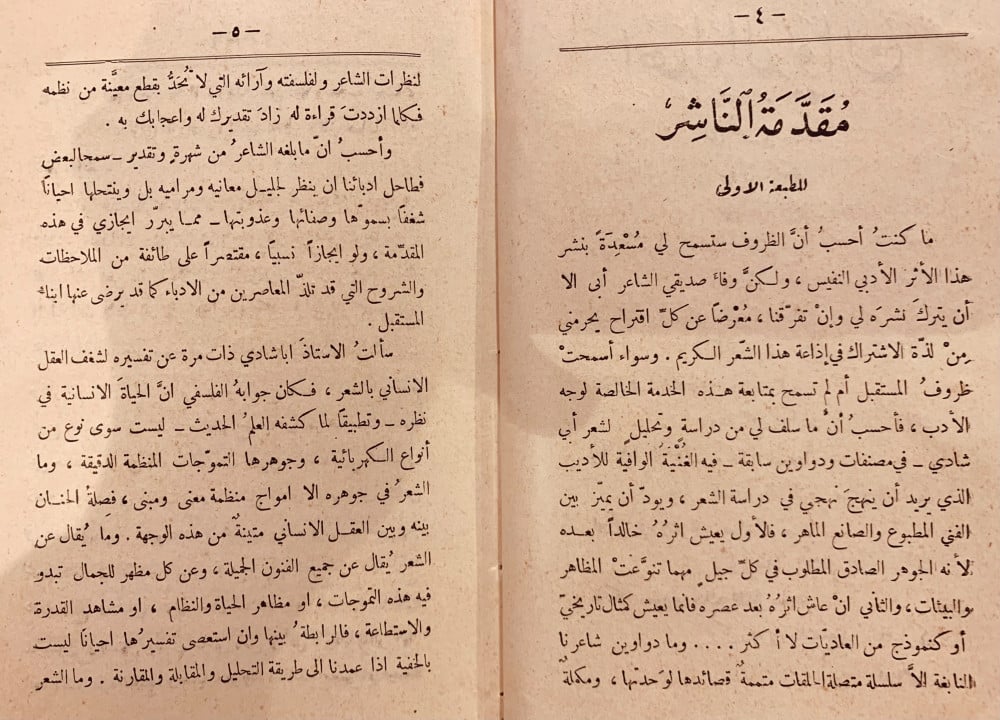 — ٤ —
مُقَدَّمَةُ ٱلنَّاشِر
للطبعة الاولى
ما كنتُ أحسبُ أنَّ الظروف ستسمح لي مُسْعِدَةً بنشر
هذا الأثر الأدبي النفيس ، ولكنَّ وفاءَ صديقي الشاعر أبى الا
أن يتركَ نشرَه لي وإنْ تفرّقنا ، مُعْرضاً عن كلّ اقتراح يحرمني
مِنْ لذّة الاشتراك في إذاعة هذا الشّعر الكريم . وسواء أسمحتْ
ظروفُ المستقبل أم لم تسمح بمتابعة هـذه الخدمة الخالصة لوجه
الأدب ، فأحسبُ أنّ ما سلف لي من دراسةٍ وتحليلٍ لشعر أبي
شادي ـ في مصنفات ودواوين سابقة ـ فيه الغُنْيَةَ الوافية للأديب
الذي يريد أن ينهجَ نهجي في دراسة الشعر ، ويودّ أن يميّز بين
الفني المطبوع والصانع الماهر ، فالأول يعيش اثرُهُ خالداً بعـده
لأنه الجوهر الصادق المطلوب في كلّ جيلٍ مهما تنوَّعتْ المظاهر
والبيئات ، والثاني انْ عاش اثرُهُ بعد عصره فانما يعيش كمثال تاريخيّ
أو كنموذج من العاديّات لا أكثر .... وما دواوين شاعرنا
النابغة الاّ سلسلة متصلة الحلقات متممةٌ قصائدها لوحدتها ، ومكملةٌ
— ٥ —
لنظرات الشاعر ولفلسفته وآرائه التي لا تُحَدُّ بقطع معيَّنة من نظمه
فـكلما ازددتَ قراءة له زادَ تقديرك له واعجابك به .
وأحسبُ انّ ما بلغه الشاعرُ من شهرةٍ وتقديرٍ ـ سمحا لبعض
فطاحل ادبائنا ان ينظر لجليـل معانيه ومراميه بل وينتحلها احياناً
شغفاً بسموّها وصفائها وعذوبتها ـ ممـا يبرّر ايجازي في هذه
المقدّمة ، ولو ايجازاً نسبياً ، مقتصراً على طائفة من الملاحظات
والشروح التي قد تلذّ المعاصرين من الادباء كما قد يرضى عنها ابناء
المستقبل .
سألتُ الاستاذَ اباشادي ذات مرة عن تفسيره لشغف العقل
الانساني بالشعر ، فـكان جوابهُ الفلسفي انَّ الحياةَ الانسانية في
نظره ـ وتطبيقاً لما كشفه العلمُ الحديث ـ ليست سوى نوع من
أنواع الكهربائية ، وجوهرها التموّجات المنظمة الدقيقة ، وما
الشعرُ في جوهره الا امواج منظمة معنى ومبنى ، فصلةُ الحنـان
بينه وبين العقـل الانساني متينةٌ من هذه الوجهة . وما يُقال عن
الشعر يُقال عن جميع الفنون الجميلة ، وعن كل مظهر للجمال تبدو
فيه هذه التموجات ، او مظاهر الحياة والنظام ، او مشاهد القدرة
والاستطاعة ، فالرابطةُ بينها وان استعصى تفسيرُها احياناً ليست
بالخفية اذا عمدنا الى طريقة التحليل والمقابلة والمقارنة . وما الشعر